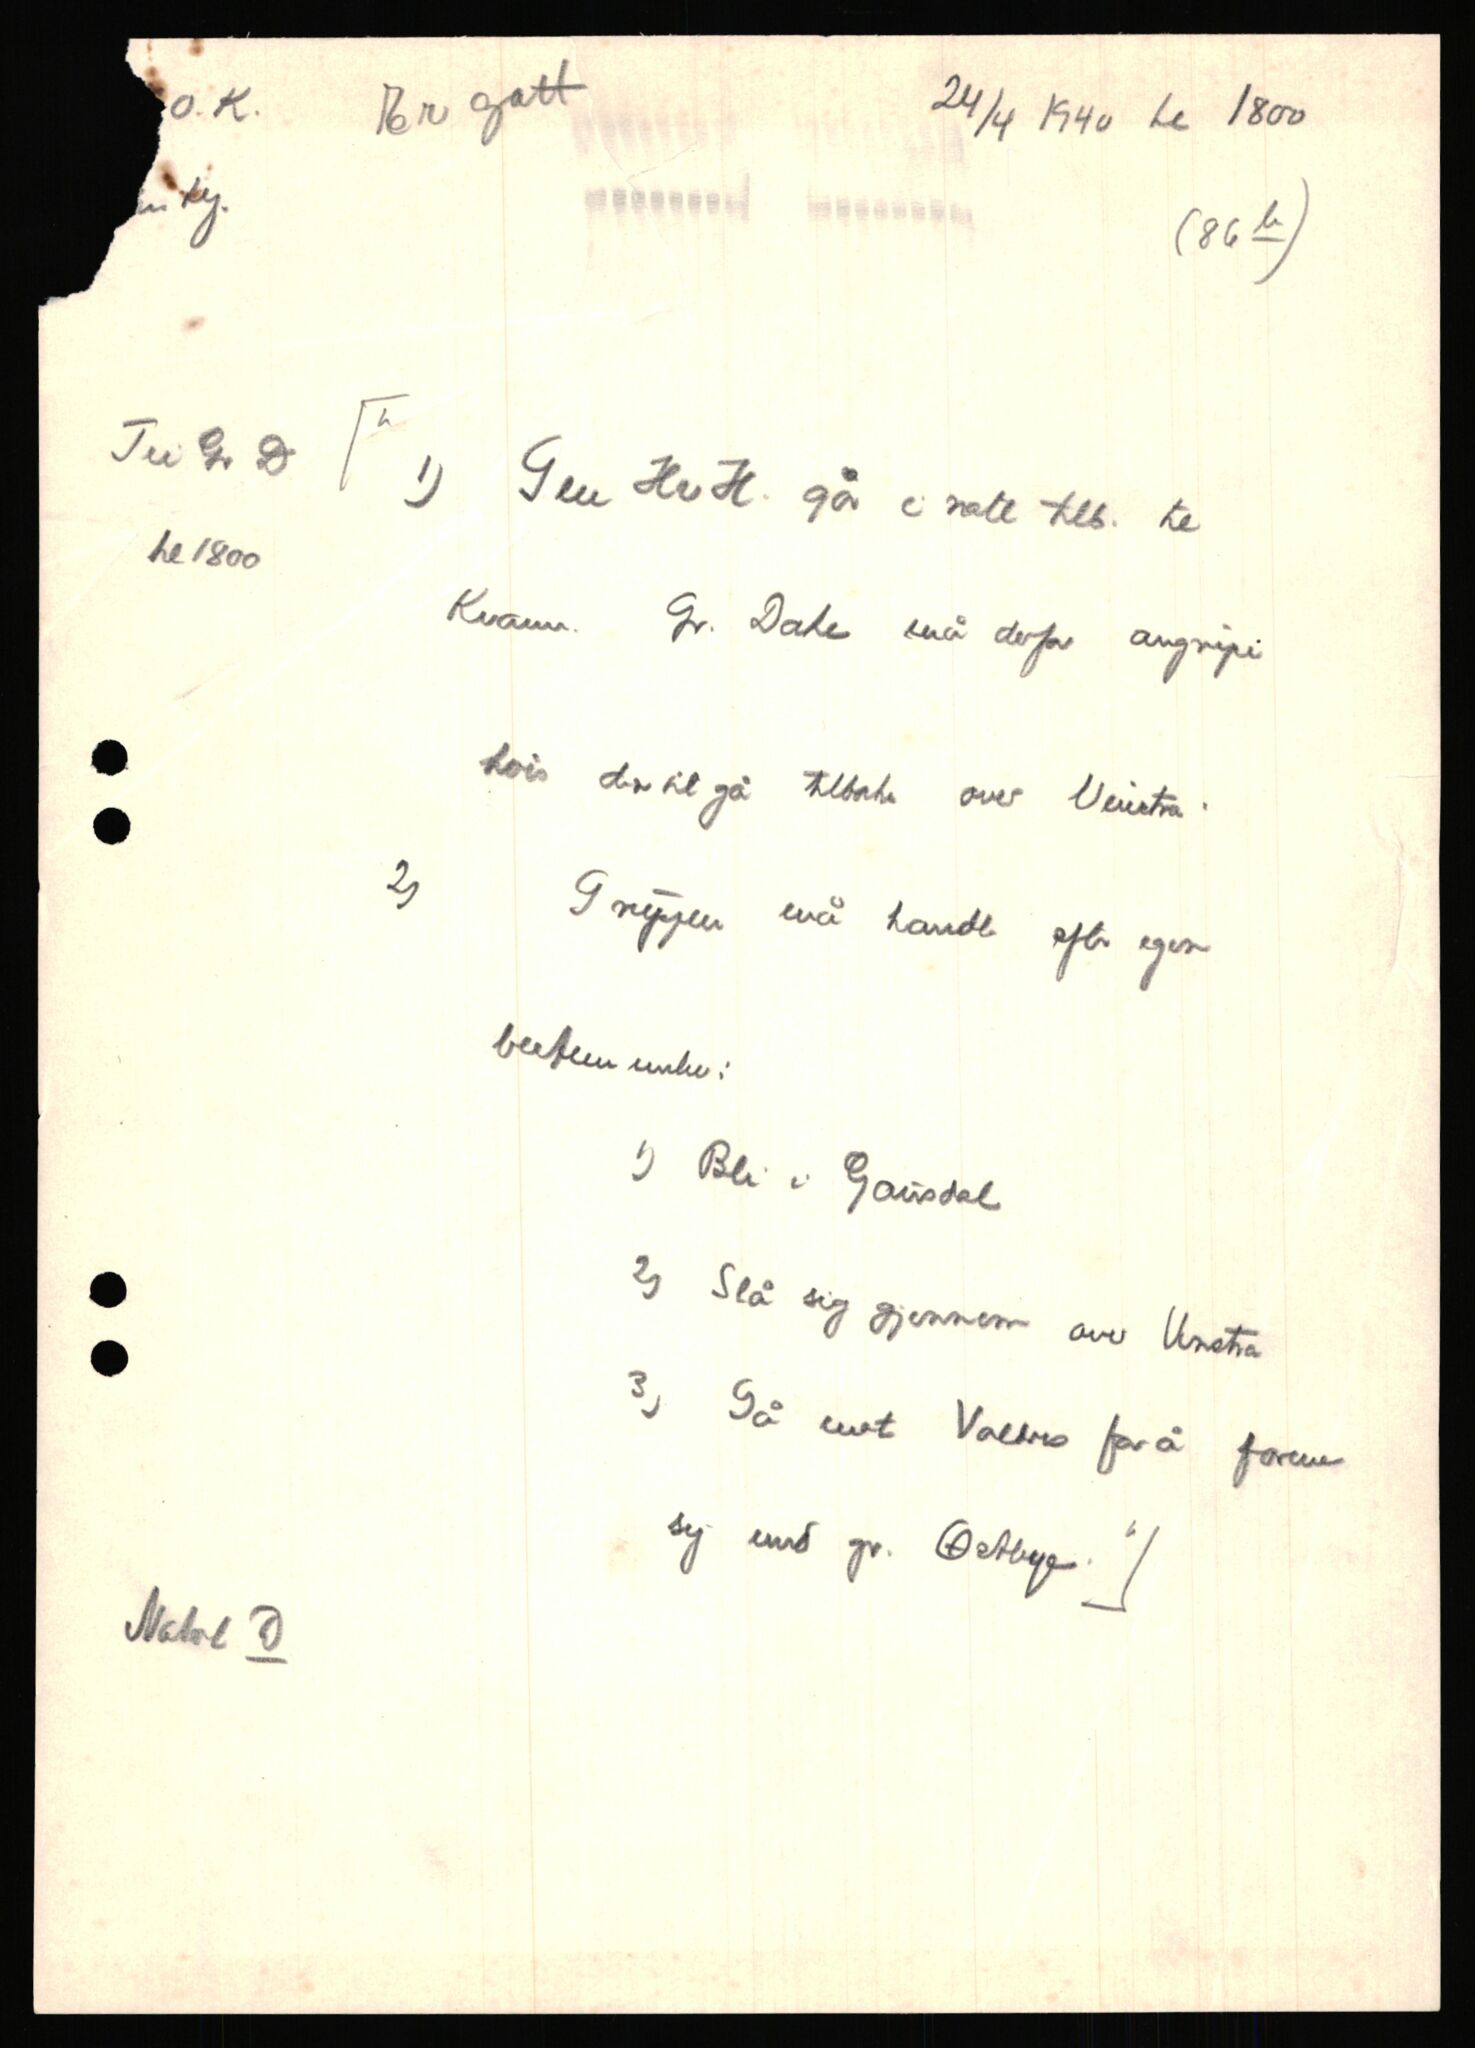 O.K. Per gatt 24/4 1940 kl 1800
(86 b)
Til Gr D
kl 1800
1) Gen Hv H. går i natt tilb. til
Kvam. Gr. Dahl må derfor angripe
hvis den vil gå tilbake over Vinstra.
2) Gruppen må handle efter egen
bestemmelse:
1) Bli i Gausdal
2) Slå sig gjennem over Vinstra
3) Gå mot Valdres for å forene
sig med gr. Østbye."]
D